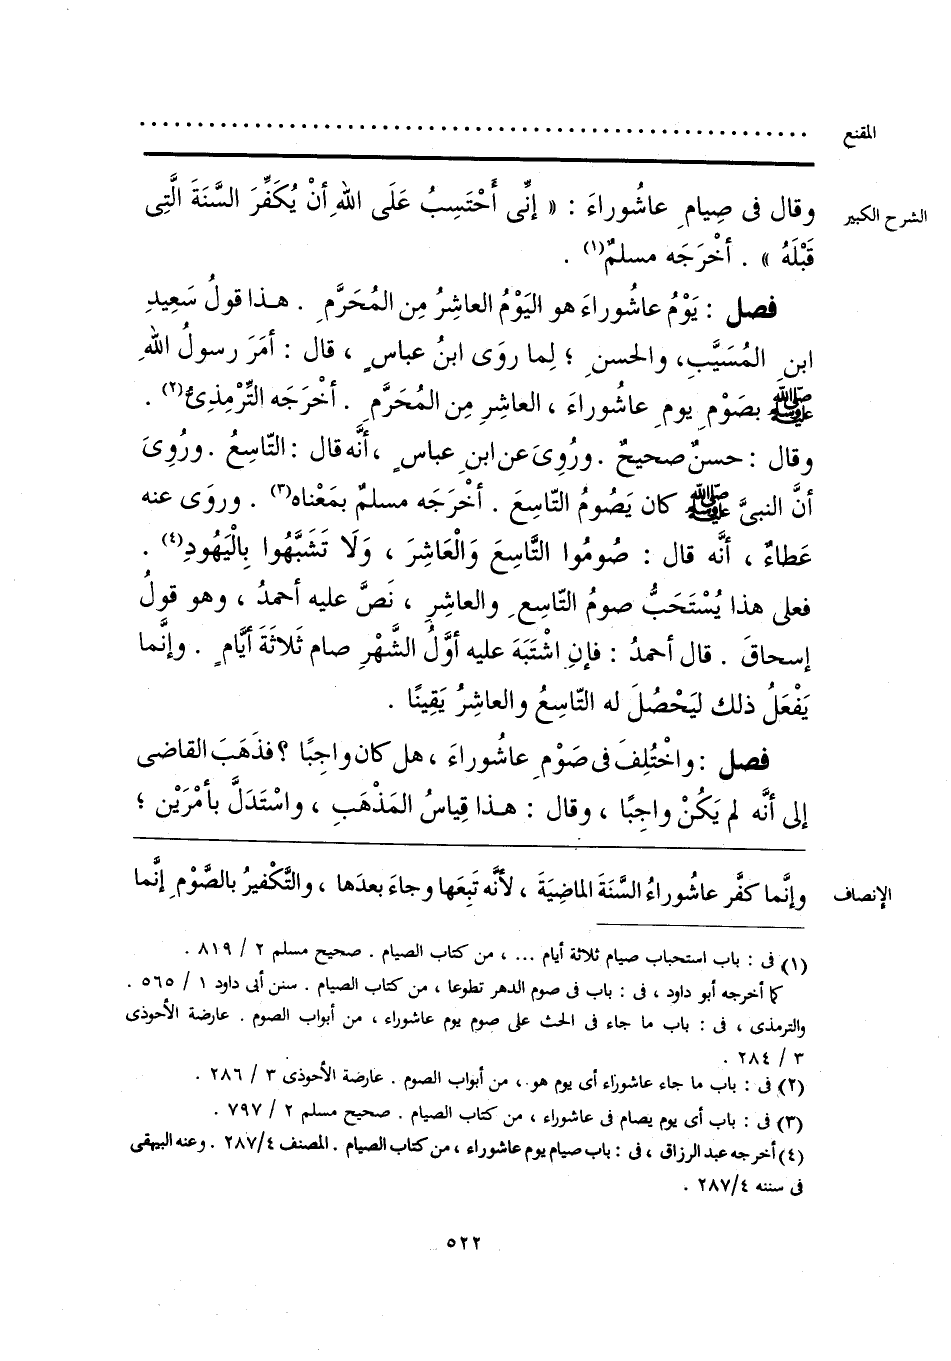 المقنع ............................................................
الشرح الكبير وقال فى صِيامِ عاشُوراءَ : « إنِّى أَحْتَسِبُ عَلَى اللهِ أنْ يُكَفِّرَ السَّنَةَ الَّتِى
قَبْلَهُ » . أخْرَجَه مسلمٌ(١) .
فصل : يَوْمُ عاشُوراءَ هو اليَوْمُ العاشِرُ مِن المُحَرَّمِ . هذا قولُ سَعِيدِ
ابنِ المُسَيَّبِ، والحسنِ ؛ لِما روَى ابنُ عباسٍ ، قال : أمَرَ رسولُ اللهِ
ﷺ بصَوْمِ يومِ عاشُوراءَ ، العاشِرِ مِن المُحَرَّمِ . أخْرَجَه التِّرْمِذِىُّ(٢) .
وقال : حسنٌ صحيحٌ . ورُوِىَ عن ابنِ عباسٍ ، أنَّه قال : التّاسِعُ . ورُوِىَ
أنَّ النبىَّ ﷺ كان يَصُومُ التّاسِعَ . أخْرَجَه مسلمٌ بمَعْناه(٣) . وروَى عنه
عَطاءٌ ، أنَّه قال : صُومُوا التَّاسِعَ وَالْعَاشِرَ ، وَلَا تَشَبَّهُوا بِالْيَهُودِ(٤) .
فعلى هذا يُسْتَحَبُّ صومُ التّاسِعِ والعاشِرِ ، نَصَّ عليه أحمدُ ، وهو قولُ
إسحاقَ . قال أحمدُ : فإنِ اشْتَبَهَ عليه أوَّلُ الشَّهْرِ صام ثَلاثَةَ أيَّامٍ . وإنَّما
يَفْعَلُ ذلك ليَحْصُلَ له التّاسِعُ والعاشِرُ يَقِينًا .
فصل : واخْتُلِفَ فى صَوْمِ عاشُوراءَ ، هل كان واجِبًا ؟ فذَهَبَ القاضى
إلى أنَّه لم يَكُنْ واجِبًا ، وقال : هذا قِياسُ المَذْهَبِ ، واسْتَدَلَّ بأمْرَيْن ؛
الإنصاف وإنَّما كفَّر عاشُوراءُ السَّنَةَ الماضِيَةَ ، لأنَّه تَبِعَها وجاءَ بعدَها ، والتَّكْفِيرُ بالصَّوْمِ إنَّما
(١) فى : باب استحباب صيام ثلاثة أيام ... ، من كتاب الصيام . صحيح مسلم ٢ / ٨١٩ .
كما أخرجه أبو داود ، فى : باب فى صوم الدهر تطوعا ، من كتاب الصيام . سنن أبى داود ١ / ٥٦٥ .
والترمذى ، فى : باب ما جاء فى الحث على صوم يوم عاشوراء ، من أبواب الصوم . عارضة الأحوذى
٣ / ٢٨٤ .
(٢) فى : باب ما جاء عاشوراء أى يوم هو ، من أبواب الصوم . عارضة الأحوذى ٣ / ٢٨٦ .
(٣) فى : باب أى يوم يصام فى عاشوراء ، من كتاب الصيام . صحيح مسلم ٢ / ٧٩٧ .
(٤) أخرجه عبد الرزاق ، فى : باب صيام يوم عاشوراء ، من كتاب الصيام . المصنف ٢٨٧/٤ . وعنه البيهقى
فى سننه ٢٨٧/٤ .
٥٢٢